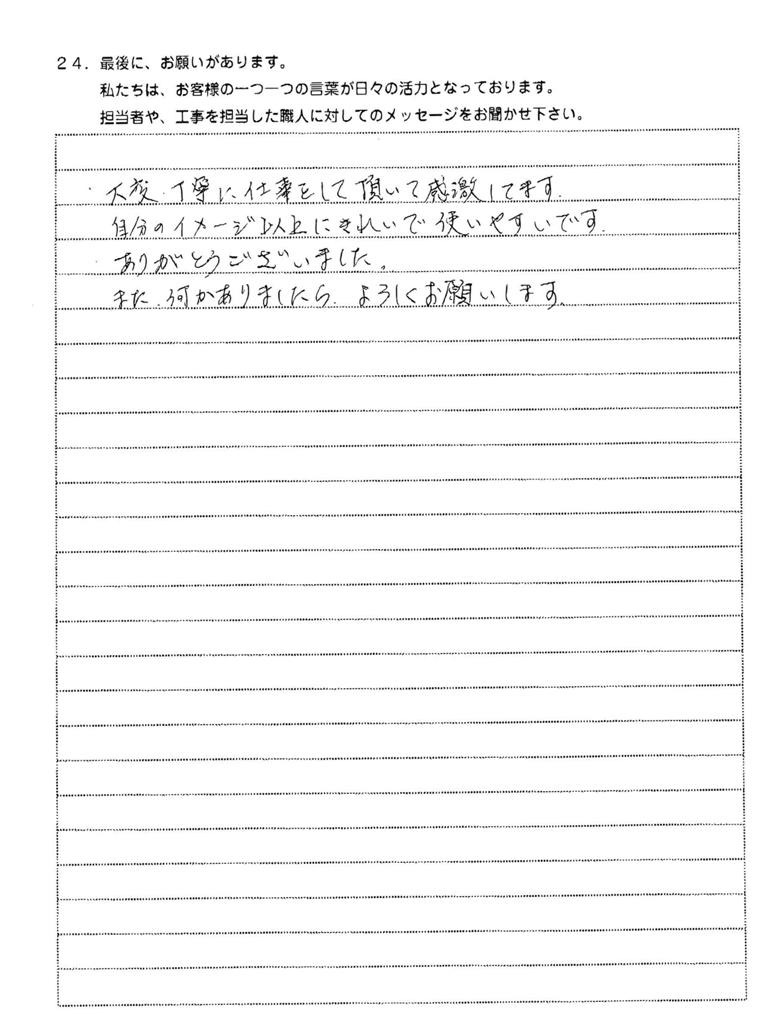 24. 最後に、お願いがあります。
私たちは、お客様の一つ一つの言葉が日々の活力となっております。
担当者や、工事を担当した職人に対してのメッセージをお聞かせ下さい。
・大変、丁寧に仕事をして頂いて感激してます.
自分のイメージ以上にきれいで使いやすいです.
・ありがとうございました。
また、何かありましたら、よろしくお願いします.